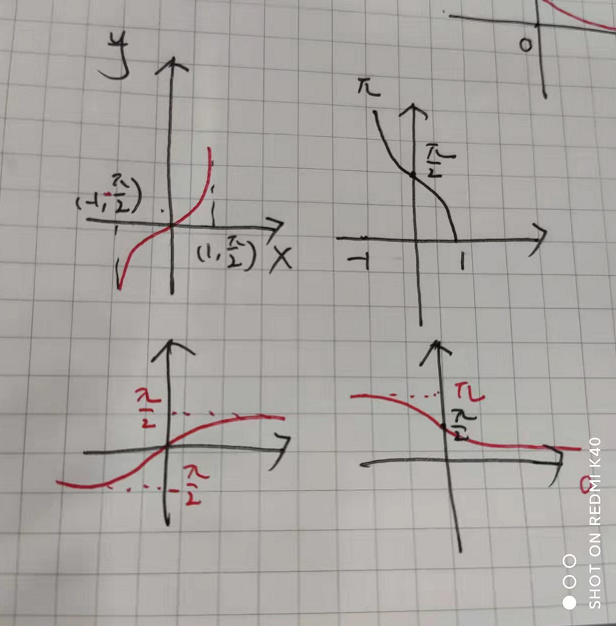 0
y
π
π/2
(-1,-π/2)
(1,π/2) X
-1 1
π/2
-π/2
π
π/2
0
SHOT ON REDMI K40